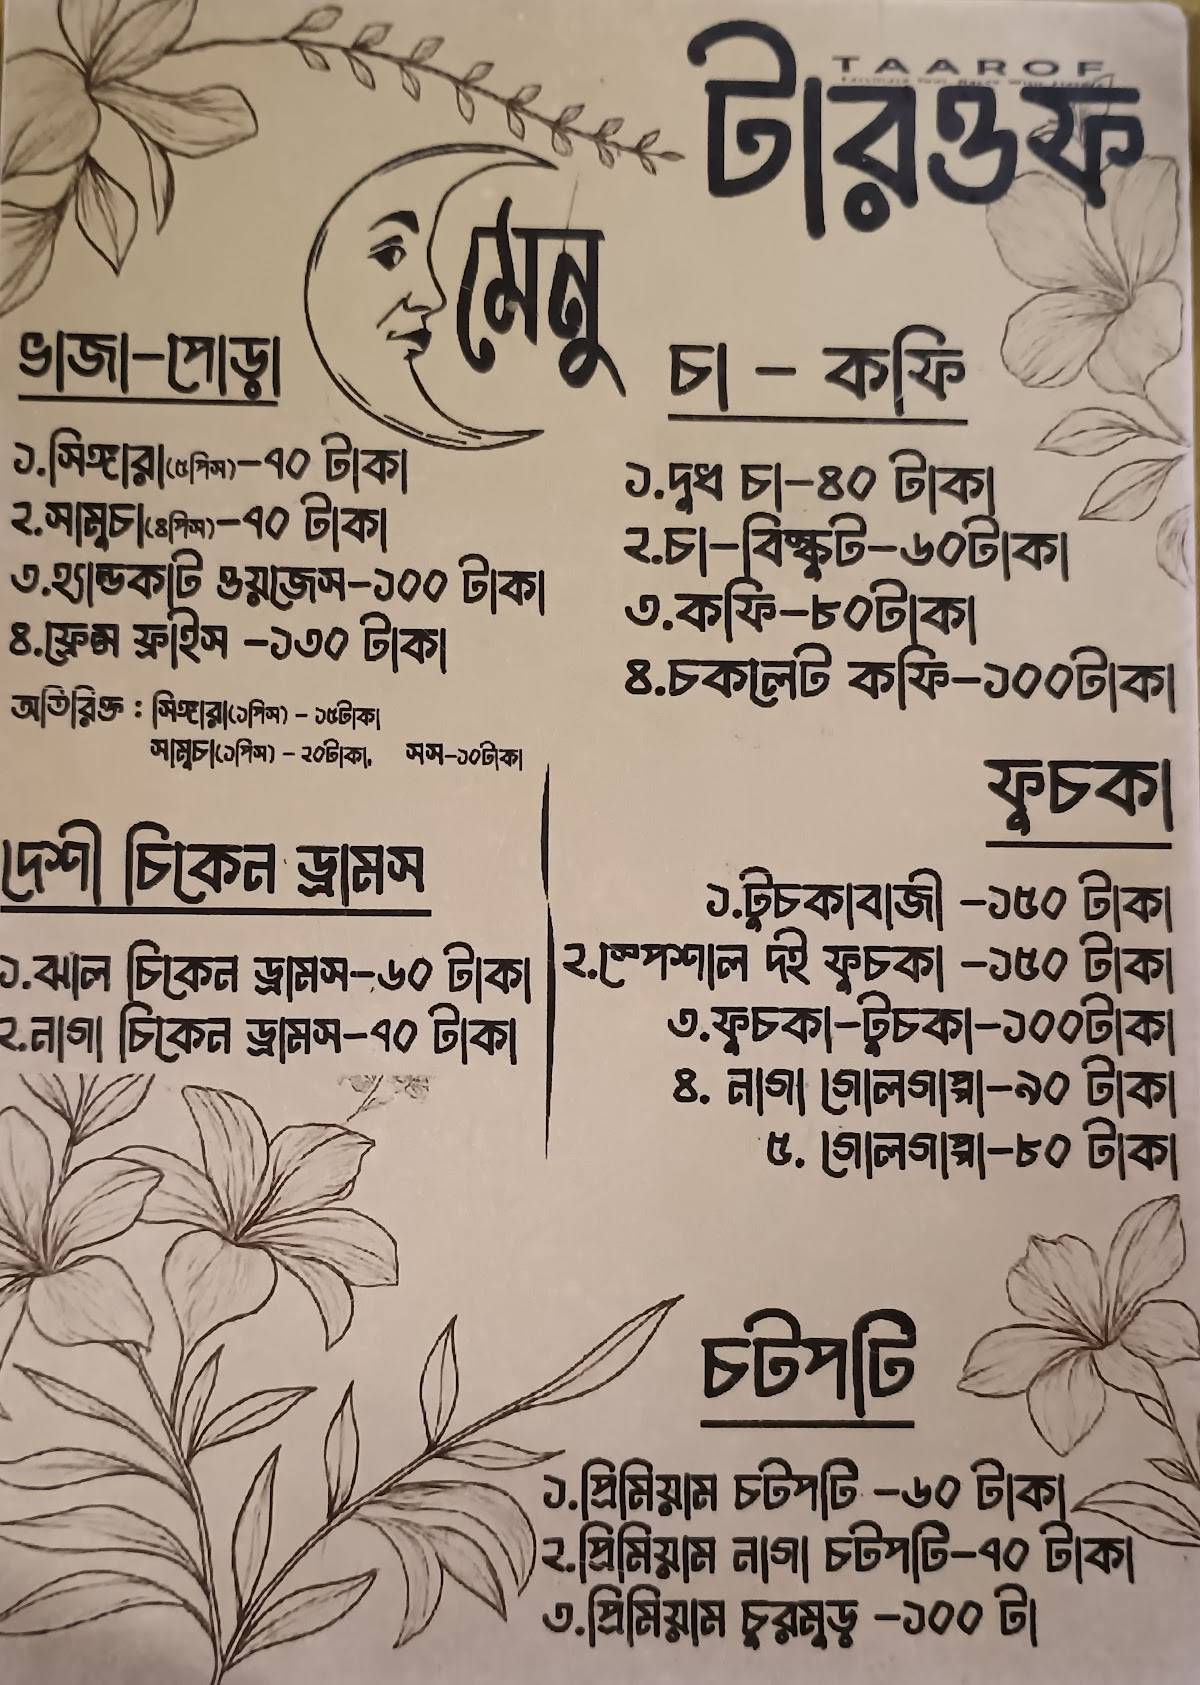 TAAROF
টারওফ
মেনু
ভাজা-পোড়া
১.সিঙ্গারা(৫পিস)-৭০ টাকা
২.সামুচা(৪পিস)-৭০ টাকা
৩.হ্যান্ডকাট ওয়েজেস-১০০ টাকা
৪.ফ্রেন্স ফ্রাইস -১৩০ টাকা
অতিরিক্ত : সিঙ্গারা(১পিস) - ১৫টাকা
সামুচা(১পিস) - ২০টাকা, সস-১০টাকা
চা - কফি
১.দুধ চা-৪০ টাকা
২.চা-বিস্কুট-৬০টাকা
৩.কফি-৮০টাকা
৪.চকলেট কফি-১০০টাকা
দেশী চিকেন ড্রামস
১.ঝাল চিকেন ড্রামস-৬০ টাকা
২.নাগা চিকেন ড্রামস-৭০ টাকা
ফুচকা
১.টুচকাবাজী -১৫০ টাকা
২.স্পেশাল দই ফুচকা -১৫০ টাকা
৩.ফুচকা-টুচকা-১০০টাকা
৪. নাগা গোলগাপ্পা-৯০ টাকা
৫. গোলগাপ্পা-৮০ টাকা
চটপটি
১.প্রিমিয়াম চটপটি -৬০ টাকা
২.প্রিমিয়াম নাগা চটপটি-৭০ টাকা
৩.প্রিমিয়াম চুরমুড় -১০০ টা